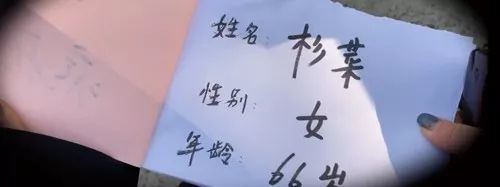 姓名: 杉菜
性别: 女
年龄: 66岁